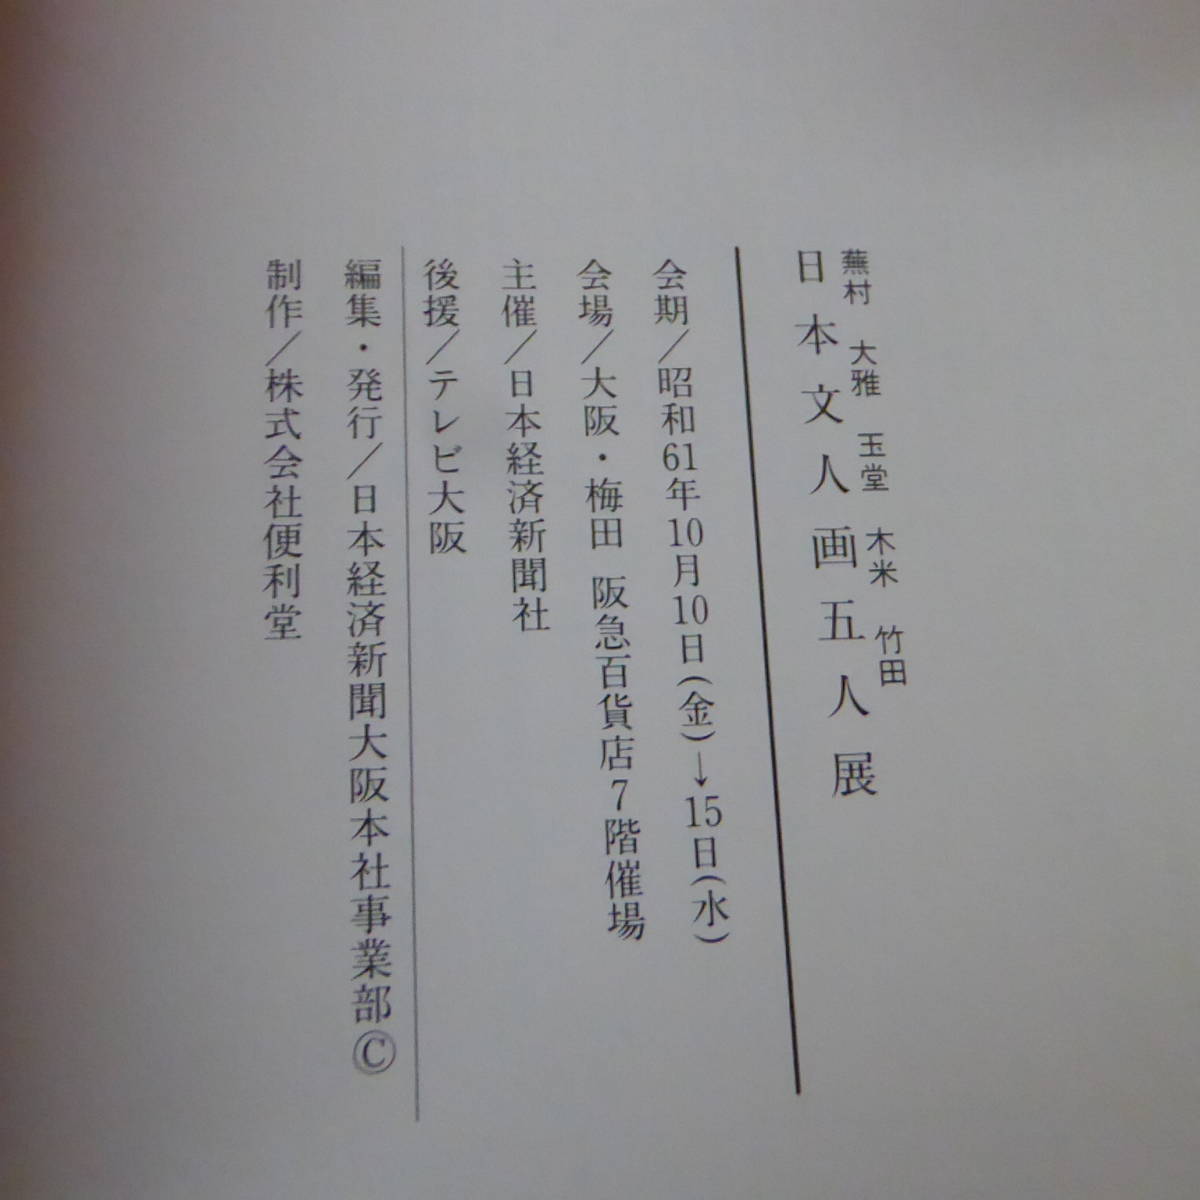 蕪村 大雅 玉堂 木米 竹田
日本文人画五人展
会期/昭和61年10月10日(金)→15日(水)
会場/大阪・梅田 阪急百貨店7階催場
主催/日本経済新聞社
後援/テレビ大阪
編集・発行/日本経済新聞大阪本社事業部©
制作/株式会社便利堂